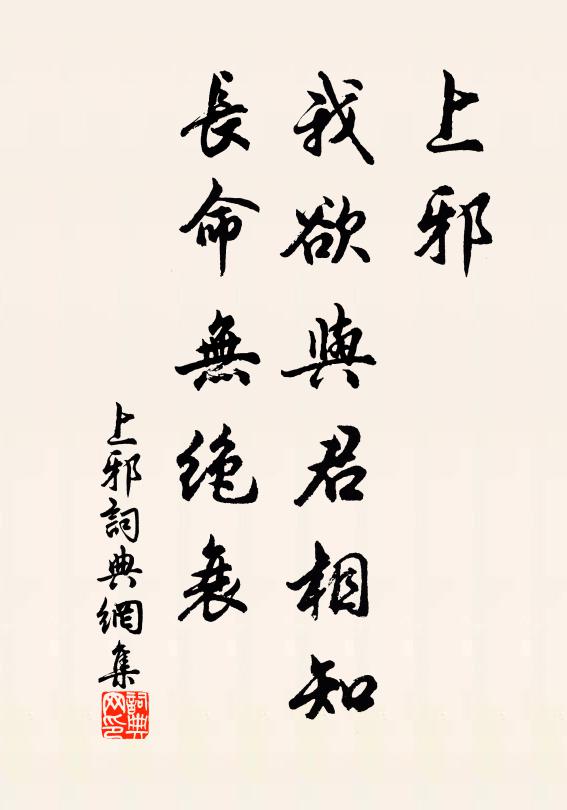 上邪
我欲與君相知
長命無絶衰
上邪詞典網集
詞典
网印